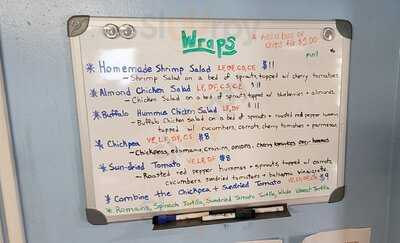 Wraps
Add a bag of
chips for $3.00
* Homemade Shrimp Salad LF, DF, CS, CE $11
- Shrimp Salad on a bed of sprouts, topped w/ cherry tomatoes
* Almond Chicken Salad LF, DF, CS, CE $11
- Chicken Salad on a bed of sprouts, topped w/ blueberries + almonds
* Buffalo Hummus Chicken Salad LF, DF $11
- Buffalo Chicken Salad on a bed of sprouts + roasted red pepper hummus,
topped w/ cucumbers, carrots, cherry tomatoes + parmesan
* Chickpea VE, LF, DF, CE $8
- Chickpeas, edamame, craisins, onions, cherry tomatoes
* Sun-dried Tomato VE, LF, DF $8
- Roasted red pepper hummus + sprouts, topped w/ carrots,
cucumbers, sundried tomatoes + balsamic vinaigrette
* Combine the Chickpea + Sundried Tomato $9
* Romaine, Spinach Tortilla, Sundried Tomato Tortilla, Whole Wheat Tortilla